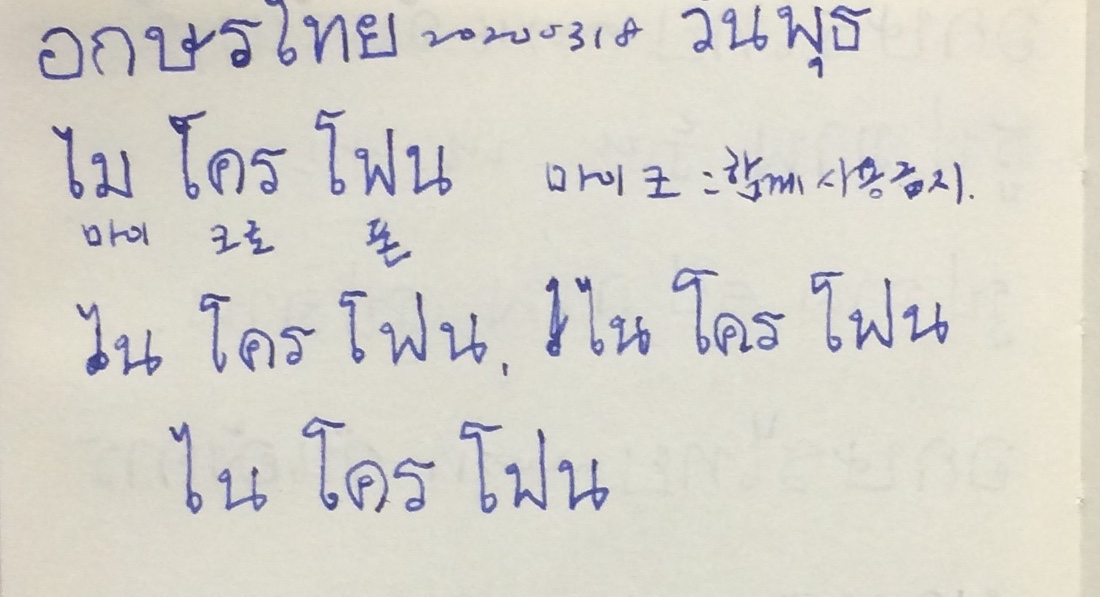 อกษรไทย 20200318 วนพุธ
ไม โคร โฟน 마이크 : 함께 사용금지.
마이 크로 폰
ไน โคร โฟน, ไน โคร โฟน
ไน โคร โฟน